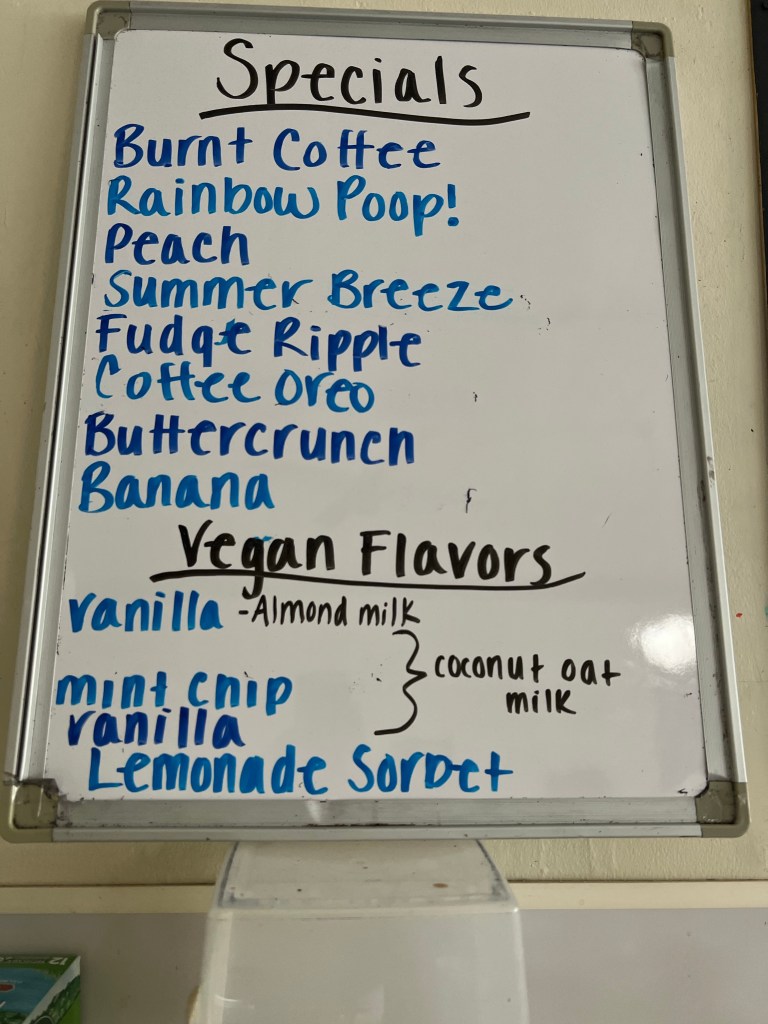 Specials
Burnt Coffee
Rainbow Poop!
Peach
Summer Breeze
Fudge Ripple
Coffee Oreo
Buttercrunch
Banana
Vegan Flavors
vanilla - Almond milk
mint chip
vanilla
} coconut oat
milk
Lemonade Sorbet
12